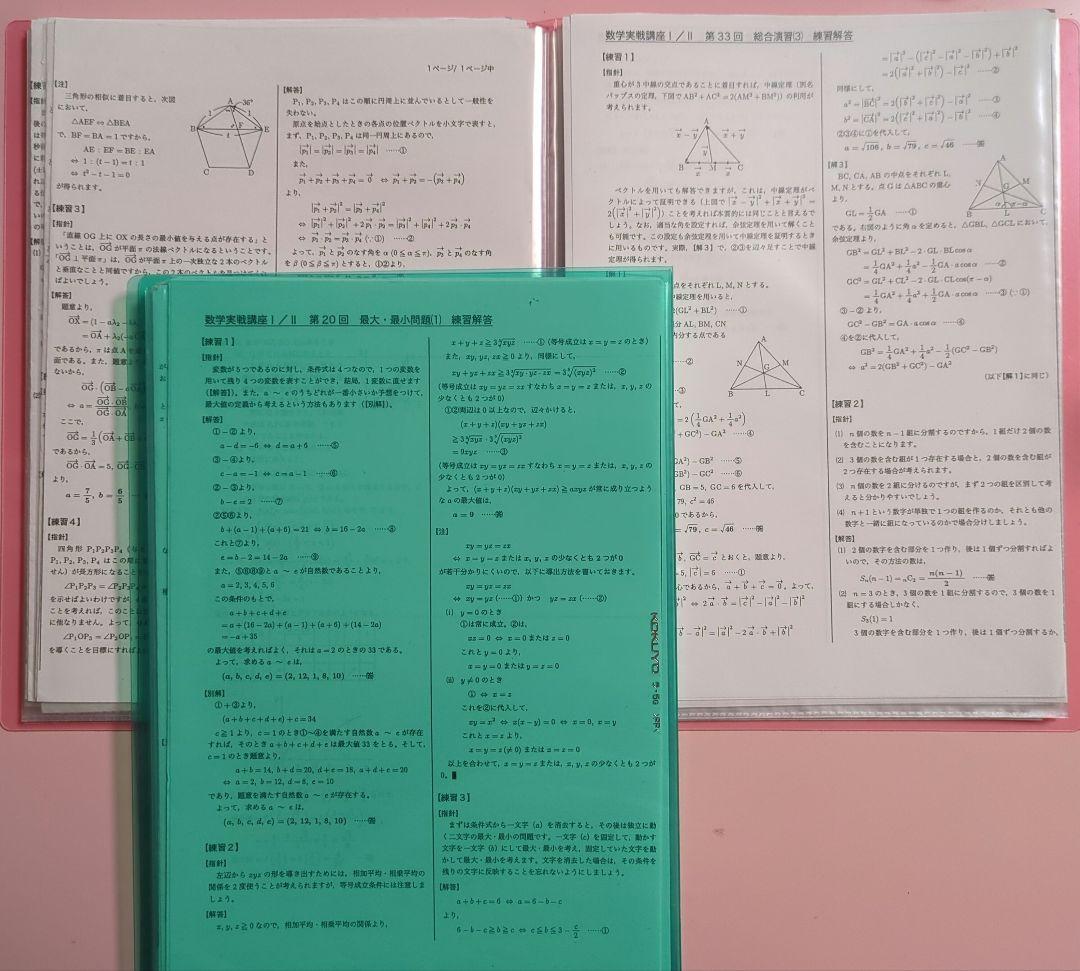 1ページ/ 1ページ中
【注】
三角形の相似に着目すると、次図
において、
△AEF ∽ △BEA
で、BF = BA = 1 ですから、
AE : EF = BE : EA
⇔ 1 : (t−1) = t : 1
⇔ t²−t−1=0
が得られます。
A 36°
B F E
t
C D
【練習3】
【指針】
「直線 OG 上に OX の長さの最小値を与える点が存在する」と
いうことは、OG が平面 π の法線ベクトルになるということです。
「OG ⊥ 平面 π」は、OG が平面 π 上の一次独立な2本のベクトル
と垂直なことと同値ですから、この2本のベクトルを見つけて
ばよいでしょう。
【解答】
題意より、
であるから、π は点 A
面である。また、題意
ないから、
ここで、
であるから、
より、
a = 7/5, b = 6/5
【練習4】
【指針】
四角形 P₁P₂P₃P₄
を示せばよいわけですが、
ことを考えれば、このことは
に他なりません。よって、
∠P₁OP₃ = ∠P₂OP₄
を導くことを目標にすれば
【解答】
P₁, P₂, P₃, P₄ はこの順に円周上に並んでいるとして一般性を
失わない。
原点を始点としたときの各点の位置ベクトルを小文字で表すと、
まず、P₁, P₂, P₃, P₄ は同一円周上にあるので、
|p₁|=|p₂|=|p₃|=|p₄| ……①
また、
p₁+p₂+p₃+p₄=0 ⇔ p₁+p₂=−(p₃+p₄)
より、
|p₁+p₂|²=|p₃+p₄|²
⇔ |p₁|²+|p₂|²+2p₁·p₂=|p₃|²+|p₄|²+2p₃·p₄
⇔ p₁·p₂=p₃·p₄ (∵①) ……②
よって、p₁ と p₂ のなす角を α (0≦α≦π)、p₃ と p₄ のなす角
を β (0≦β≦π) とすると、①②より、
数学実戦講座Ⅰ/Ⅱ 第33回 総合演習(3) 練習解答
【練習1】
【指針】
重心が3中線の交点であることに着目すれば、中線定理 (別名
パップスの定理、下図で AB²+AC²=2(AM²+BM²)) の利用が
考えられます。
A
x−y x+y
y
B x M x C
ベクトルを用いても解答できますが、これは、中線定理がベク
トルによって証明できる (上図で |x−y|²+|x+y|²=
2(|x|²+|y|²)) ことを考えれば本質的には同じことと言えるで
しょう。なお、適当な角を設定すれば、余弦定理を用いて解くこと
も可能です。この設定も余弦定理を用いて中線定理を証明するとき
に用いるものです。実際、【解3】で、②③を辺々足すことで中線
定理が得られます。
【解1】
点をそれぞれ L, M, N とする。
中線定理を用いると、
2(GL²+BL²) ……①
分 AL, BM, CN
内分する点である
……②
A
N M
G
B L C
=2(1/4 GA²+1/4 a²)
+GC²)−GA² ……④
GA²)−GB² ……⑤
GB²)−GC² ……⑥
GB=5, GC=6 を代入して、
79, c²=46
であるから、
√79, c=√46 ……㊎
b, GC=c とおくと、題意より、
=5, |c|=6 ……①
心であるから、a+b+c=0。よって、
⇔ 2a·b=|c|²−|a|²−|b|²
b−a|²=|a|²−2a·b+|b|²
=|a|²−(|c|²−|a|²−|b|²)+|b|²
=2(|a|²+|b|²)−|c|² ……②
同様にして、
a²=|BC|²=2(|b|²+|c|²)−|a|² ……③
b²=|CA|²=2(|c|²+|a|²)−|b|² ……④
②③④に①を代入して、
a=√106, b=√79, c=√46 ……㊎
【解3】
BC, CA, AB の中点をそれぞれ L,
M, N とする。点 G は △ABC の重心
より、
GL=1/2 GA ……①
である。右図のように角 α を定めると、△GBL, △GCL において、
余弦定理より、
A
N M
G
α π−α
B L C
GB²=GL²+BL²−2·GL·BL cos α
=1/4 GA²+1/4 a²−1/2 GA·a cos α ……②
GC²=GL²+CL²−2·GL·CL cos(π−α)
=1/4 GA²+1/4 a²+1/2 GA·a cos α ……③ (∵①)
③−②より、
GC²−GB²=GA·a cos α ……④
④を②に代入して、
GB²=1/4 GA²+1/4 a²−1/2 (GC²−GB²)
⇔ a²=2(GB²+GC²)−GA²
(以下【解1】に同じ)
【練習2】
【指針】
(1) n 個の数を n−1 組に分割するのですから、1組だけ2個の数
を含むことになります。
(2) 3個の数を含む組が1つ存在する場合と、2個の数を含む組が
2つ存在する場合が考えられます。
(3) n 個の数を2組に分けるのですが、まず2つの組を区別して考
えると分かりやすいでしょう。
(4) n+1 という数字が単独で1つの組を作るのか、それとも他の
数字と一緒に組になっているのかで場合分けしましょう。
【解答】
(1) 2個の数字を含む部分を1つ作り、後は1個ずつ分割すればよ
いので、その方法の数は、
Sₙ(n−1)=ₙC₂=n(n−1)/2 ……㊎
(2) n=3 のとき、3個の数を1組に分割するので、3個の数を1
組にする場合しかなく、
S₃(1)=1
3個の数字を含む部分を1つ作り、後は1個ずつ分割するか、
数学実戦講座Ⅰ/Ⅱ 第20回 最大・最小問題(1) 練習解答
【練習1】
【指針】
変数が5つであるのに対し、条件式は4つなので、1つの変数を
用いて残り4つの変数を表すことができ、結局、1変数に直せます
(【解答】)。また、a ～ e のうちどれが一番小さいか予想をつけて、
最大値の定義から考えるという方法もあります (【別解】)。
【解答】
①−②より、
a−d=−6 ⇔ d=a+6 ……⑤
③−④より、
c−a=−1 ⇔ c=a−1 ……⑥
②−③より、
b−e=2 ……⑦
②⑤⑥より、
b+(a−1)+(a+6)=21 ⇔ b=16−2a ……⑧
これと⑦より、
e=b−2=14−2a ……⑨
また、⑤⑥⑧⑨と a ～ e が自然数であることより、
a=2, 3, 4, 5, 6
この条件のもとで、
a+b+c+d+e
=a+(16−2a)+(a−1)+(a+6)+(14−2a)
=−a+35
の最大値を考えればよく、それは a=2 のときの 33 である。
よって、求める a ～ e は、
(a, b, c, d, e)=(2, 12, 1, 8, 10) ……㊎
【別解】
①+③より、
(a+b+c+d+e)+c=34
c≧1 より、c=1 のとき①～④を満たす自然数 a ～ e が存在
すれば、そのとき a+b+c+d+e は最大値 33 をとる。そして、
c=1 のとき題意より、
a+b=14, b+d=20, d+e=18, a+d+e=20
⇔ a=2, b=12, d=8, e=10
であり、題意を満たす自然数 a ～ e が存在する。
よって、求める a ～ e は、
(a, b, c, d, e)=(2, 12, 1, 8, 10) ……㊎
【練習2】
【指針】
左辺から xyz の形を導き出すためには、相加平均・相乗平均の
関係を2度使うことが考えられますが、等号成立条件には注意しま
しょう。
【解答】
x, y, z≧0 なので、相加平均・相乗平均の関係より、
x+y+z≧3∛xyz ……① (等号成立は x=y=z のとき)
また、xy, yz, zx≧0 より、同様にして、
xy+yz+zx≧3∛xy·yz·zx=3∛(xyz)² ……②
(等号成立は xy=yz=zx すなわち x=y=z または、x, y, z の
少なくとも2つが0)
①②両辺は0以上なので、辺々かけると、
(x+y+z)(xy+yz+zx)
≧3∛xyz·3∛(xyz)²
=9xyz ……③
(等号成立は xy=yz=zx すなわち x=y=z または、x, y, z の
少なくとも2つが0)
よって、(x+y+z)(xy+yz+zx)≧axyz が常に成り立つよう
な a の最大値は、
a=9 ……㊎
【注】
xy=yz=zx
⇔ x=y=z または x, y, z の少なくとも2つが0
が若干分かりにくいので、以下に導出方法を書いておきます。
xy=yz=zx
⇔ xy=yz (……①) かつ yz=zx (……②)
(i) y=0 のとき
①は常に成立。②は、
zx=0 ⇔ x=0 または z=0
これと y=0 より、
x=y=0 または y=z=0
(ii) y≠0 のとき
① ⇔ x=z
これを②に代入して、
xy=x² ⇔ x(x−y)=0 ⇔ x=0, x=y
これと x=z より、
x=y=z(≠0) または x=z=0
以上を合わせて、x=y=z または、x, y, z の少なくとも2つが
0。
【練習3】
【指針】
まずは条件式から一文字 (a) を消去すると、その後は独立に動
く二文字の最大・最小の問題です。一文字 (c) を固定して、動かす
文字を一文字 (b) にして最大・最小を考え、固定していた文字を動
かして最大・最小を考えます。文字を消去した場合は、その条件を
残りの文字に反映することを忘れないようにしましょう。
【解答】
a+b+c=6 ⇔ a=6−b−c
より、
6−b−c≧b≧c ⇔ c≦b≦3−c/2 ……①
KOKUYO